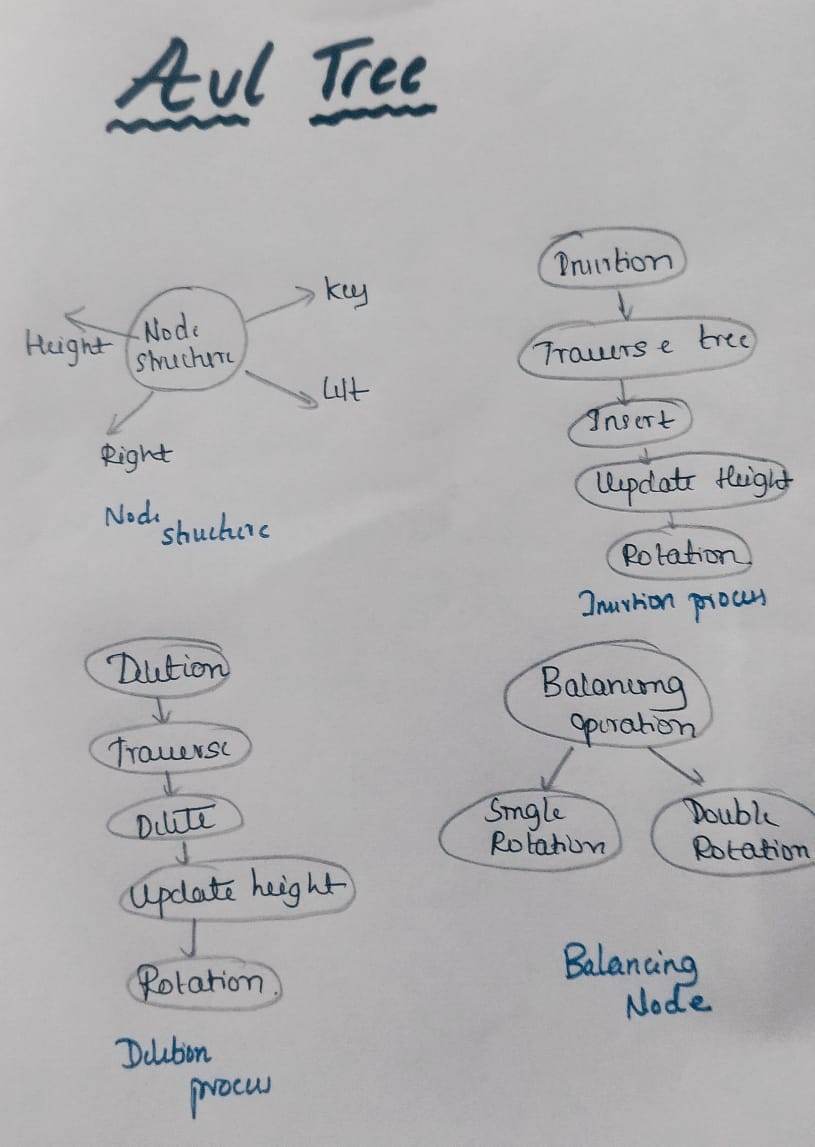 Avl Tree
Node
structure
Key
Height
Left
Right
Node
structure
Insertion
Traverse tree
Insert
Update Height
Rotation
Insertion process
Deletion
Traverse
Delete
Update height
Rotation.
Deletion
process
Balancing
operation
Single
Rotation
Double
Rotation
Balancing
Node